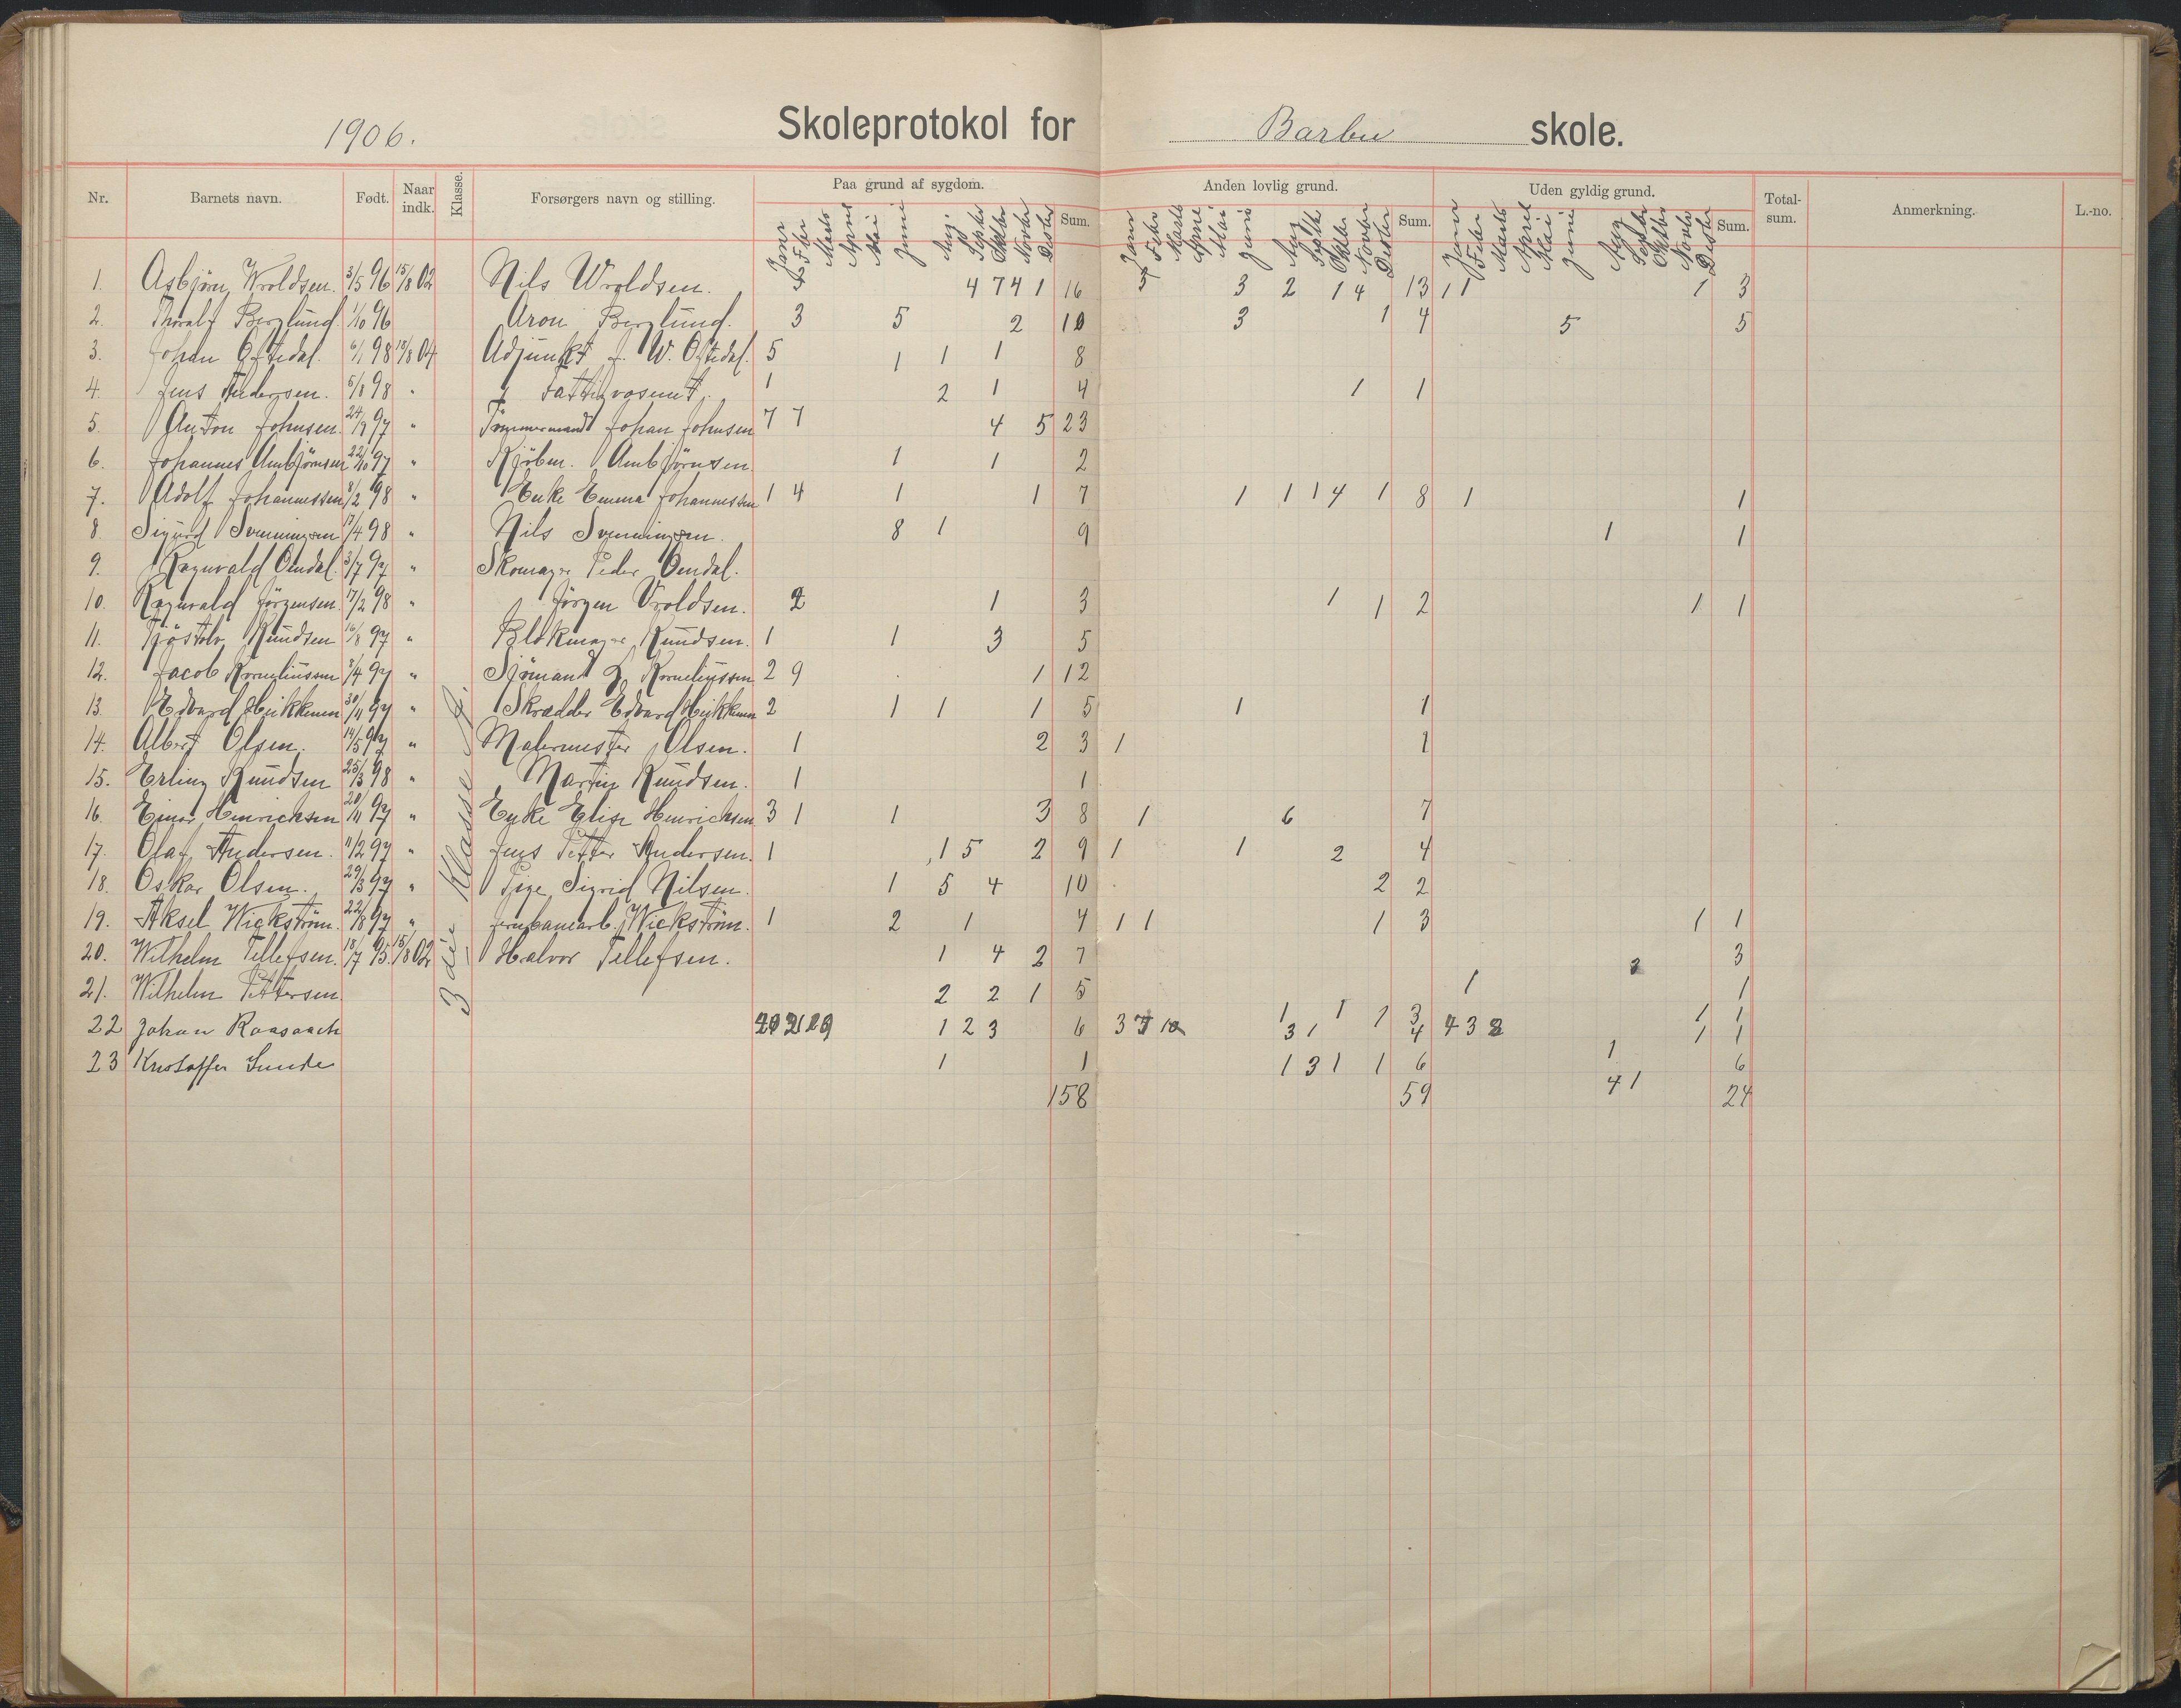 1906. Skoleprotokol for Barbu skole.
Nr. Barnets navn. Født. Naar indk. Klasse. Forsørgers navn og stilling. Paa grund af sygdom. Anden lovlig grund. Uden gyldig grund. Total-sum. Anmerkning. L.-no.
Janr Febr Marts April Mai Juni Aug Septbr Oktbr Novbr Desbr Sum. Janr Febr Marts April Mai Juni Aug Septb Oktbr Novbr Desbr Sum. Janr Febr Marts April Mai Juni Aug Septbr Oktbr Novbr Desbr Sum.
3die Klasse g.
1. Asbjörn Wroldsen. 3/5 96 15/8 02 Nils Wroldsen. 4 7 4 1 16 5 3 2 1 4 13 1 1 1 3
2. Thoralf Berglund. 1/10 96 Aron Berglund. 3 5 2 10 3 1 4 5 5
3. Johan Oftedal. 6/1 98 15/8 04 Adjunkt J. W. Oftedal. 5 1 1 1 8
4. Jens Andersen. 5/1 98 " 1 2 1 4 1 1
5. Anton Johnsen. 24/9 97 " Tömmermand Johan Johnsen 7 7 4 5 23
6. Johannes Ambjörnsen 22/10 97 " Kjöbm. Ambjörnsen 1 1 2
7. Adolf Johannessen 8/2 98 " Enke Emma Johannessen 1 4 1 1 7 1 1 1 4 1 8 1 1
8. Sigurd Svenningsen 17/4 98 " Nils Svenningsen. 8 1 9 1 1
9. Ragnvald Omdal. 3/7 97 " Skomager Peder Omdal.
10. Ragnvald Jörgensen. 17/2 98 " Jörgen Vroldsen. 2 1 3 1 1 2 1 1
11. Tjöstolv Knudsen 16/8 97 " Blokmager Knudsen. 1 1 3 5
12. Jacob Korneliussen 8/4 97 " Sjömand Korneliussen 2 9 1 12
13. Edvard Heikkenen 30/11 97 " Skrædder Edvard Heikkenen 2 1 1 1 5 1 1
14. Albert Olsen. 14/5 97 " Malermester Olsen. 1 2 3 1 1
15. Erling Knudsen 25/3 98 " Martin Knudsen. 1 1
16. Einar Henrichsen 20/11 97 " Enke Elise Henrichsen 3 1 1 3 8 1 6 7
17. Olaf Andersen. 11/2 97 " Jens Petter Andersen. 1 1 5 2 9 1 1 2 4
18. Oskar Olsen. 29/3 97 " Pige Sigrid Nilsen. 1 5 4 10 2 2
19. Aksel Wickström. 22/8 97 " Jernbanearb. Wickström. 1 2 1 4 1 1 1 3 1 1
20. Wilhelm Tellefsen. 18/7 95. 15/8 02 Halvor Tellefsen. 1 4 2 7 2 3
21. Wilhelm Pettersen. 2 2 1 5 1 1 1 3 1 1
22 Johan 1 2 3 6 3 1 4 4 3 1 1
23 Kristoffer Sunde 1 1 1 3 1 1 6 1 6
158 59 4 1 24